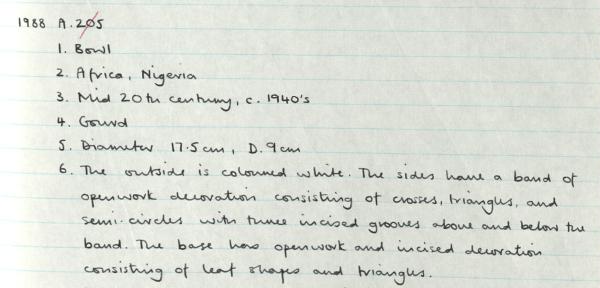 1988 A.205
1. Bowl
2. Africa, Nigeria
3. Mid 20th century, c. 1940's
4. Gourd
5. Diameter 17.5cm, D. 9cm
6. The outside is coloured white. The sides have a band of
openwork decoration consisting of crosses, triangles, and
semi-circles with three incised grooves above and below the
band. The base has openwork and incised decoration
consisting of leaf shapes and triangles.